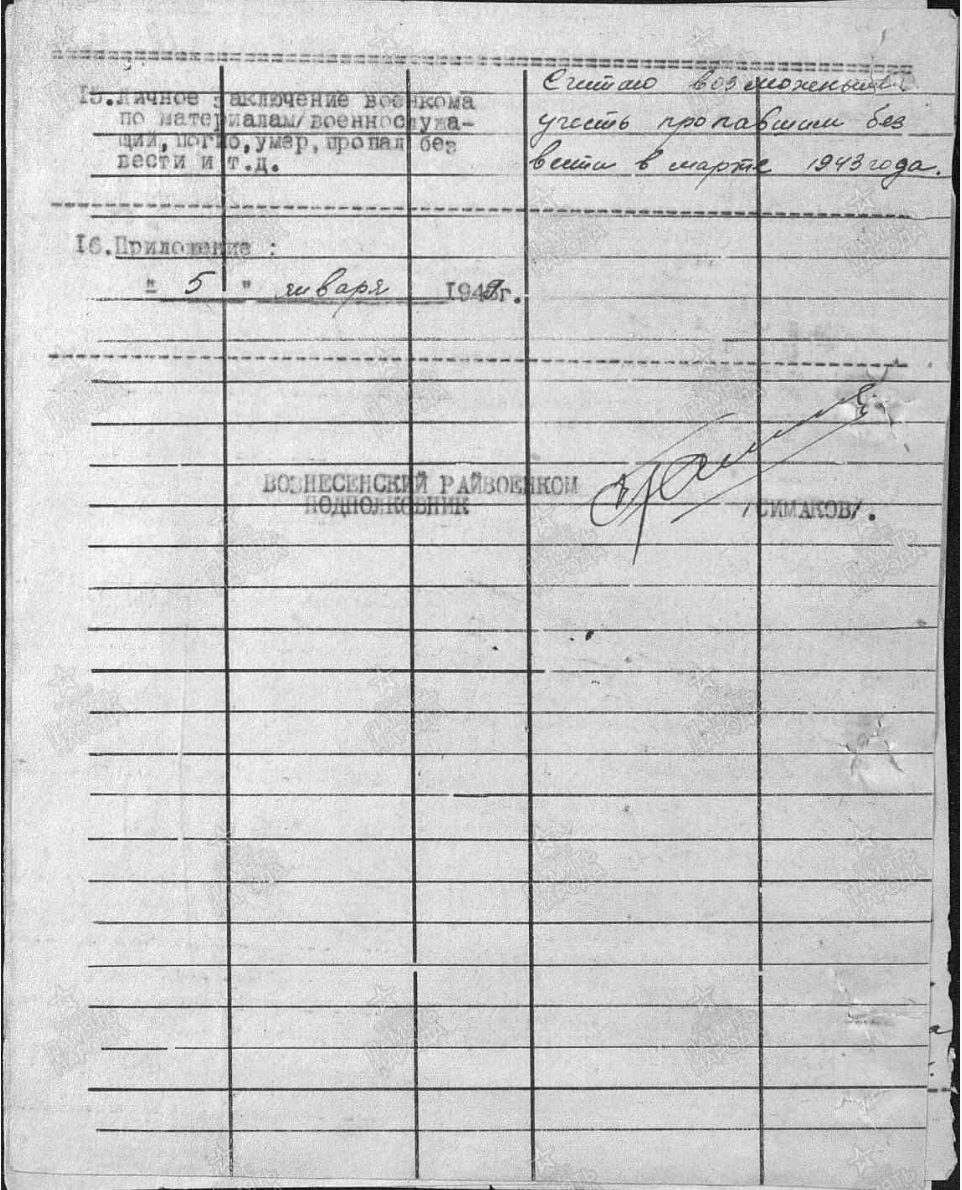 15.Личное заключение военкома
по материалам/военнослужа-
щий, погиб, умер, пропал без
вести и т.д.
Считаю возможным
учесть пропавшим без
вести в марте 1943 года.
16.Приложение :
" 5 " января 194 г.
ВОЗНЕСЕНСКИЙ РАЙВОЕНКОМ
ПОДПОЛКОВНИК
/СИМАКОВ/.
ПАМЯТЬ НАРОДА